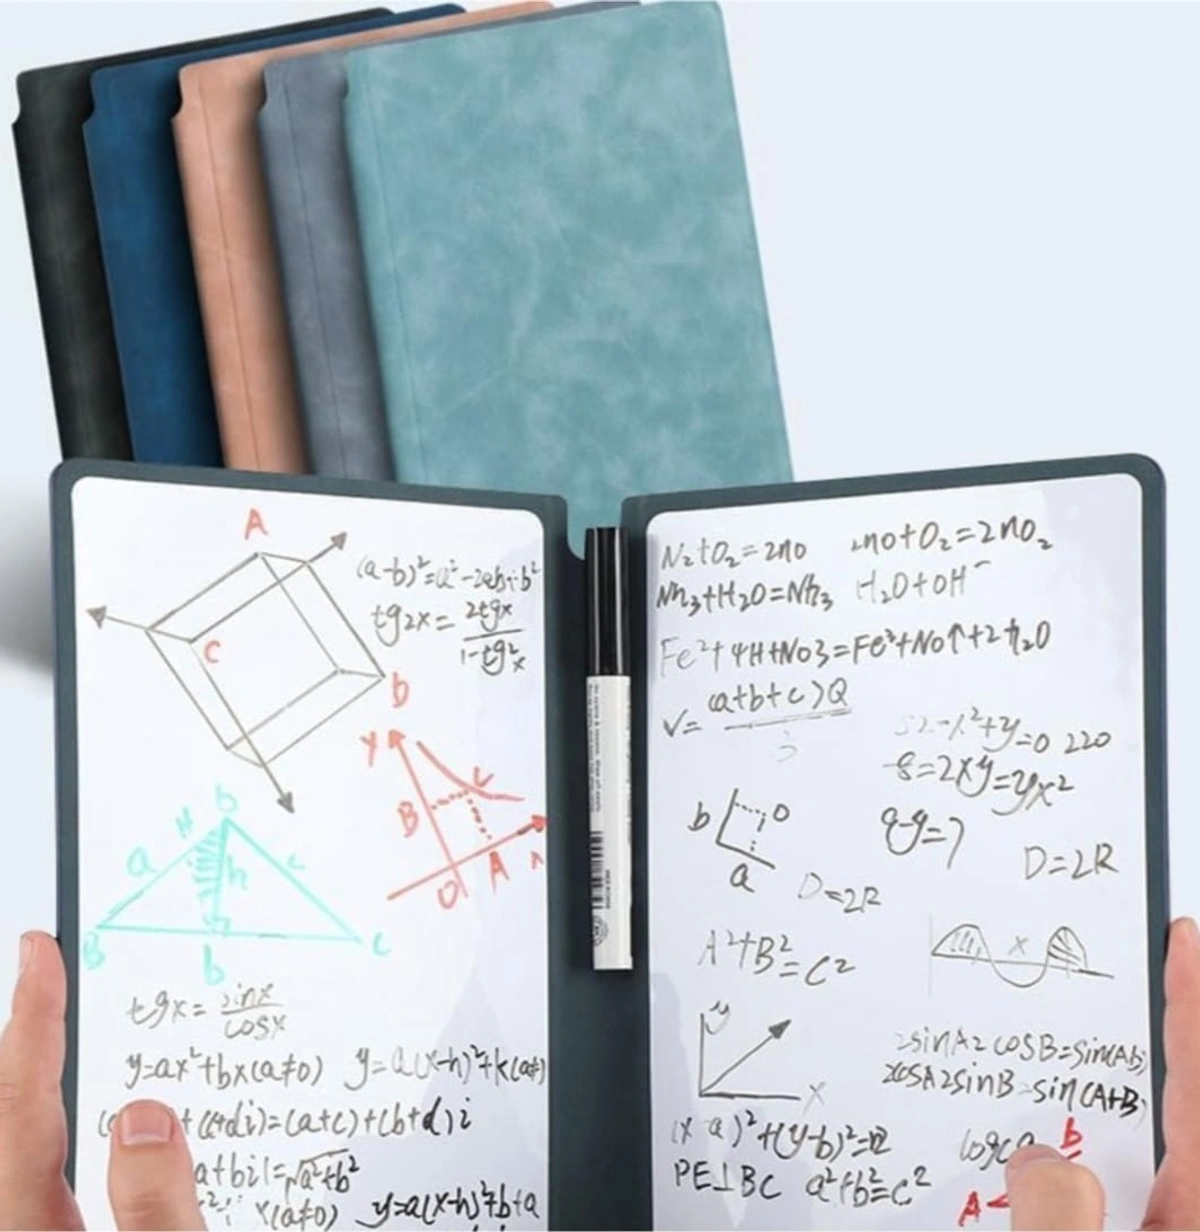 A
(a-b)²=a²-2ab+b²
tg2x= 2tgx
1-tg²x
C
b
y
C
B
A
O
x
b
H
a
c
h
B
b
C
tgx= sinx
cosx
y=ax²+bx(a≠0) y=a(x-h)²+k(a≠)
+(c+di)=(a+c)+(b+d)i
a+bi|=√a²+b²
x(a≠0) y=a(x-h)²+b+a
N₂+O₂=2no 2no+O₂=2nO₂
Nh₃+H₂O=Nh₃ H₂O+OH⁻
Fe²+4H+No3=Fe³+No↑+2h₂O
V= (a+b+c)Q
3
52-x²+y=0 220
-8=2xy=yx²
b
O
a
8-y=7
D=2R
D=2R
A²+B²=C²
x
y
x
2sinA2cosB=sin(Ab)
2cosA2sinB=sin(A+B)
(x-a)²+(y-b)²=12
PE⊥BC a²+b²=c²
logca
b
A<